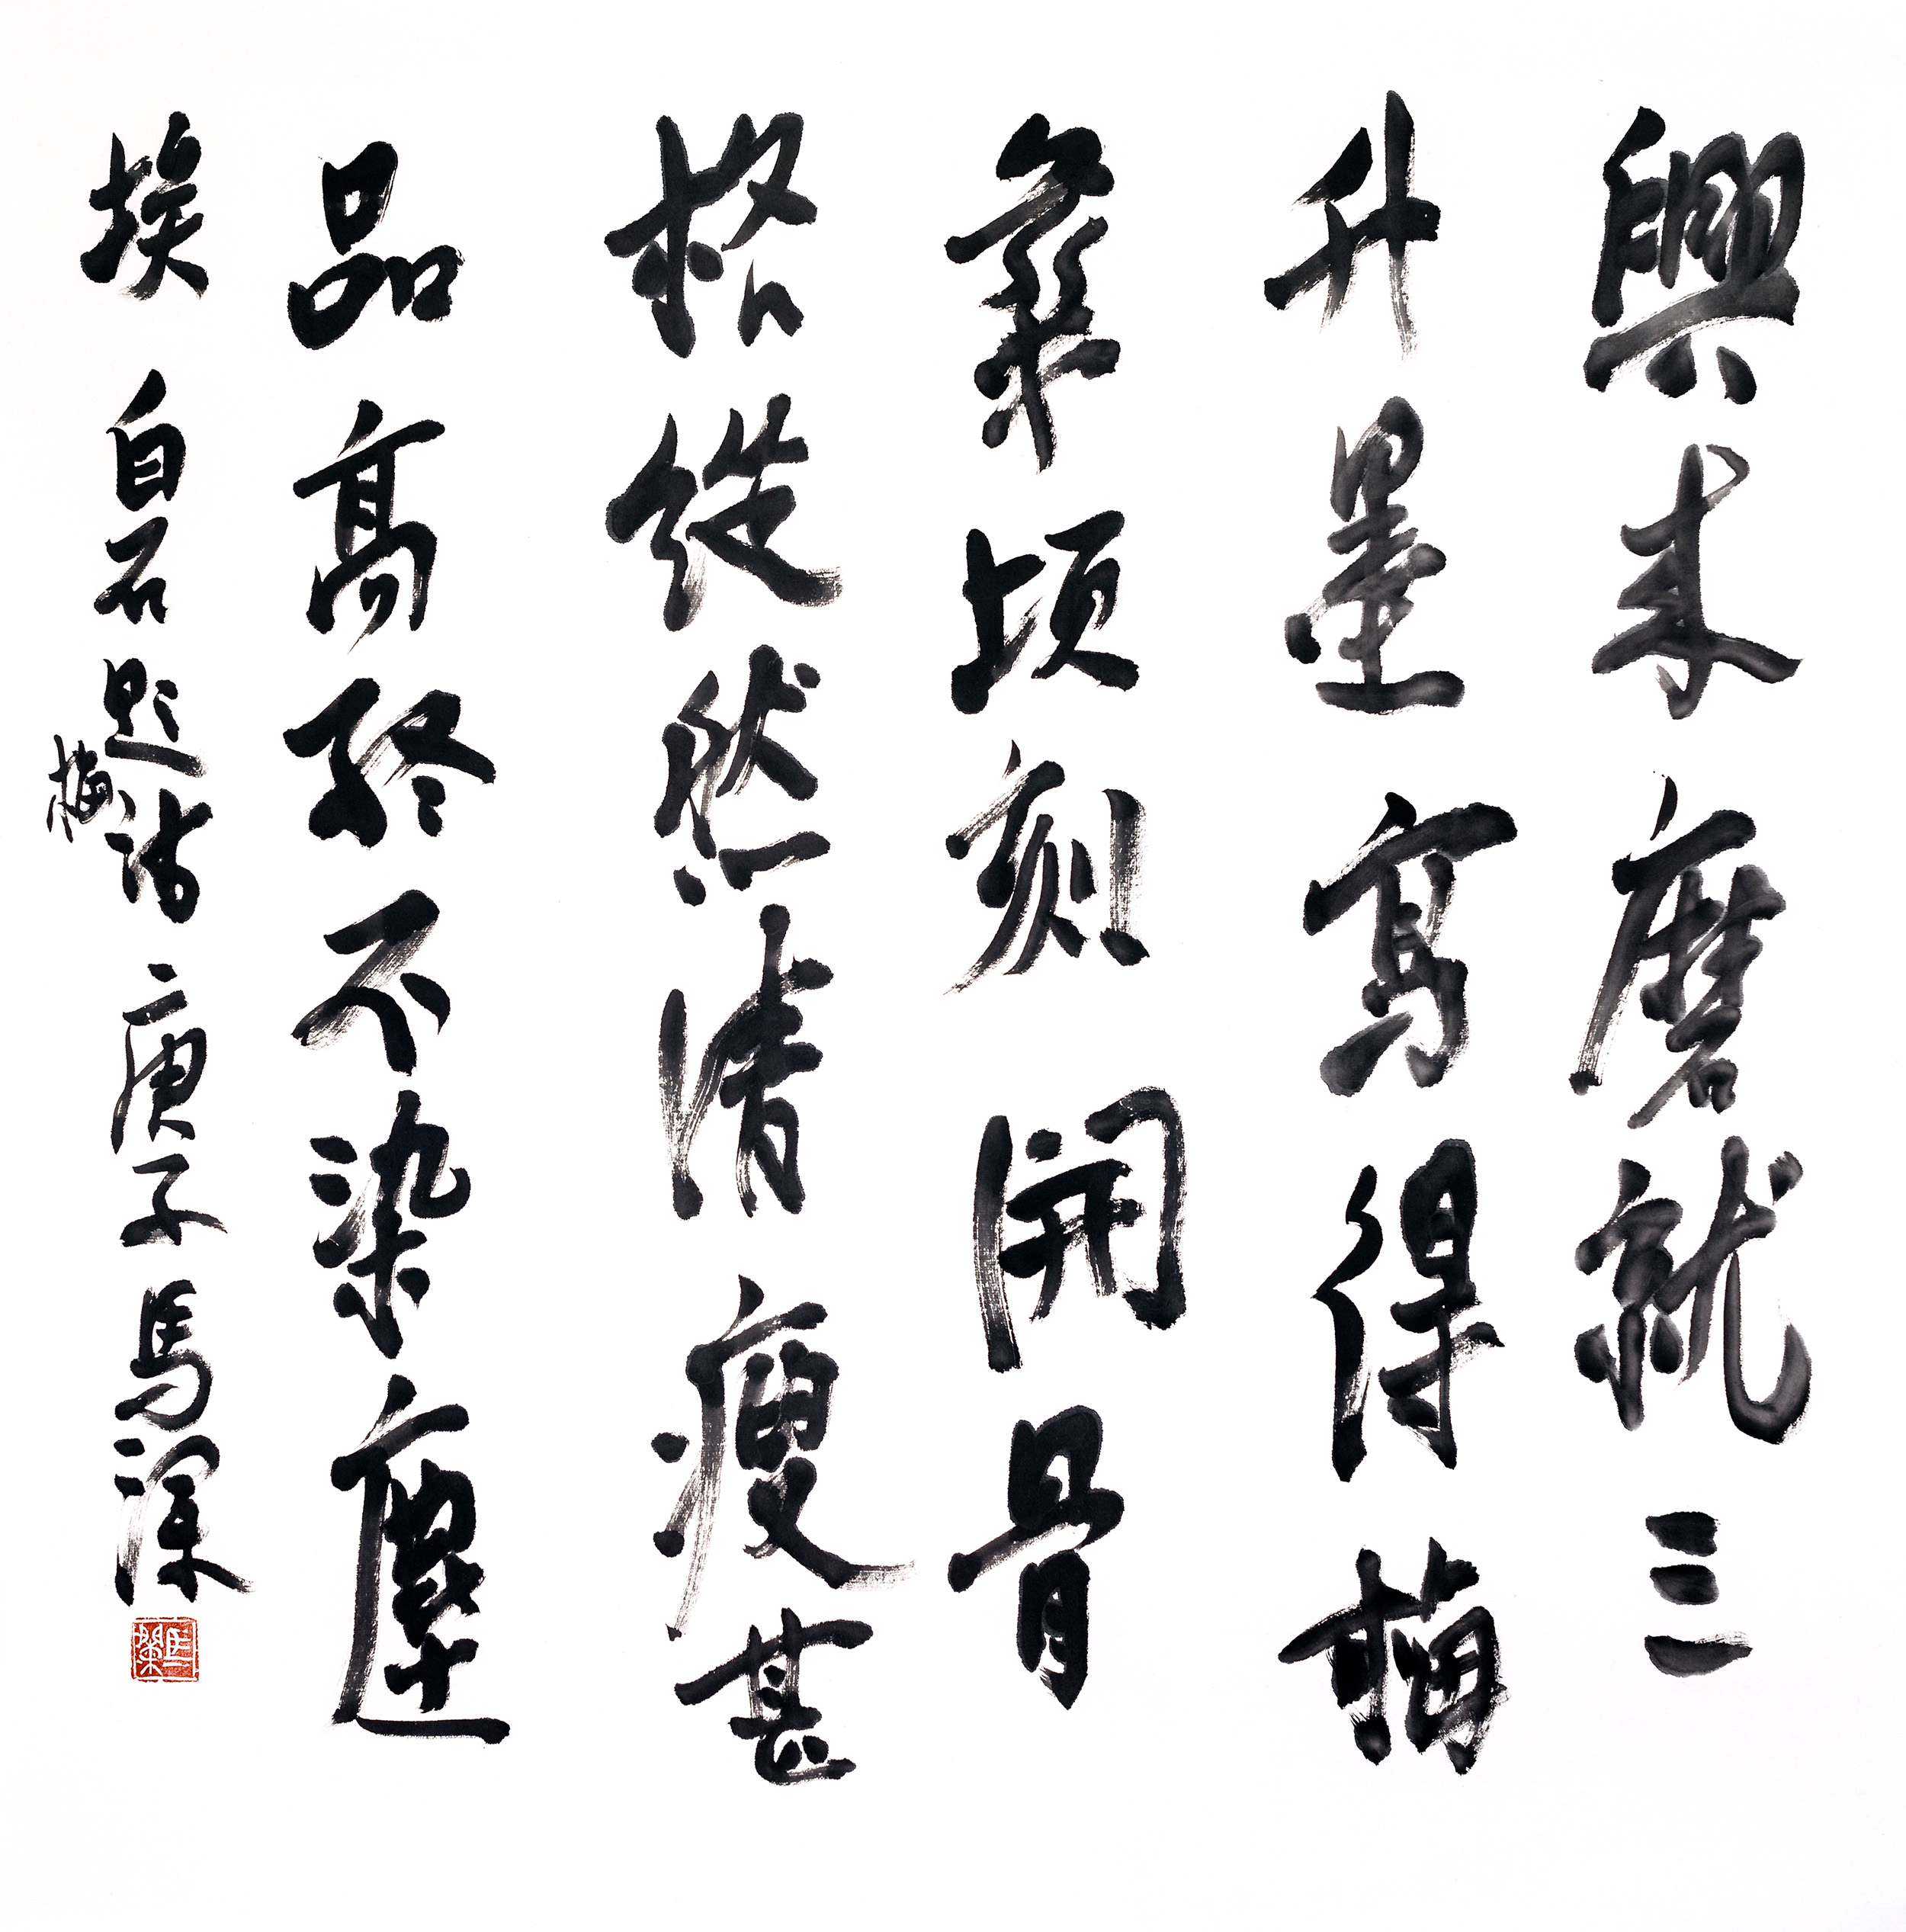 興来磨就三
升墨寫得梅
頃刻開骨
格縱然清瘦甚
品高終不染塵
埃 白石題梅詩 庚子 馬